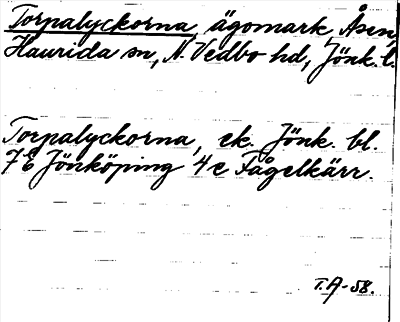 Torpalyckorna, ägomark, Åsen,
Haurida sn, N. Vedbo hd, Jönk. l.
Torpalyckorna, ek. Jönk. bl.
7E Jönköping 4 e Fågelkärr.
T.A-58.